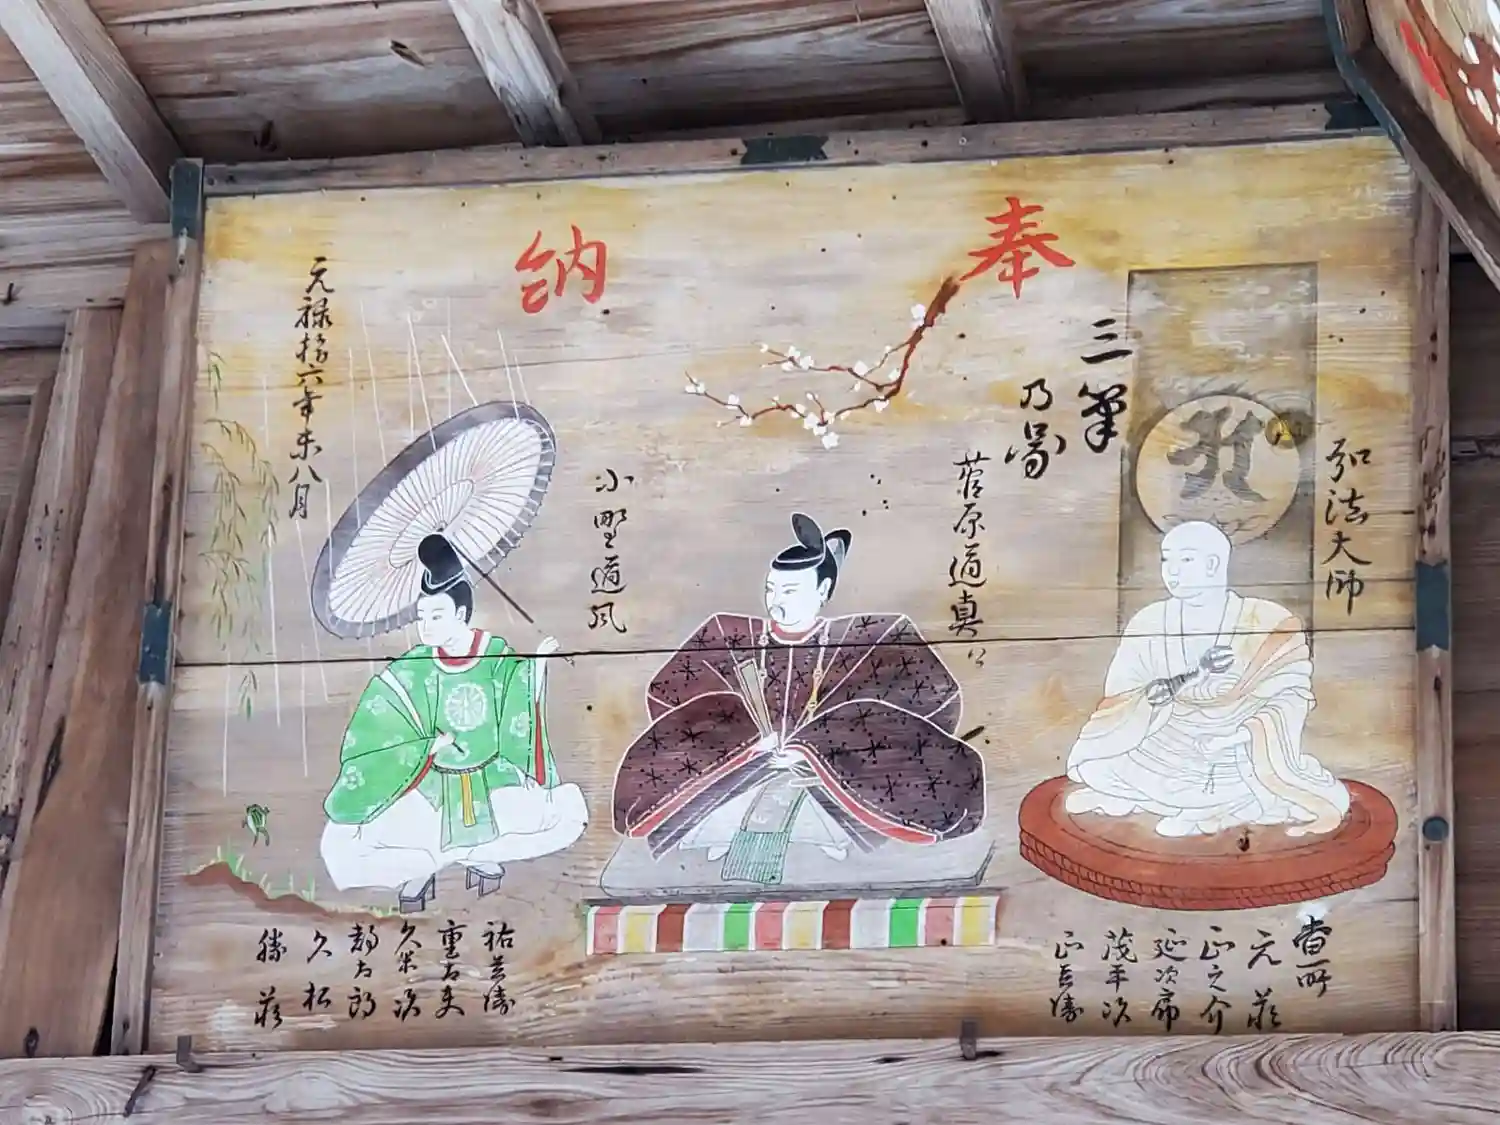 奉納
三筆
乃図
弘法大師
菅原道真公
小野道風
元禄拾六年未八月
当所
元蔵
正之介
延次郎
茂平次
正吉
祐
重太夫
久米次
太郎
久松
勝蔵